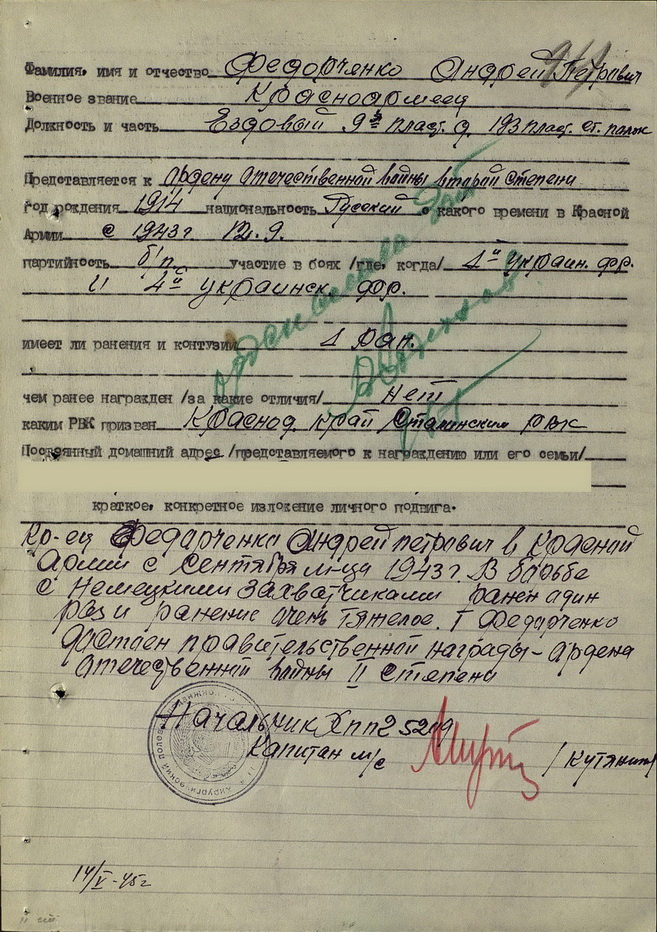 Фамилия, имя и отчество Федорченко Андрей Петрович
Военное звание Красноармеец
Должность и часть Ездовый 9й пласт. д. 193 пласт. ст. полк
Представляется к ордену отечественной войны второй степени
год рождения 1914 национальность Русский с какого времени в Красной
Армии с 1943г.
партийность б/п участие в боях /где, когда/ 1й Украин. фр.
и 4й украинск. фр.
имеет ли ранения и контузии 1 ран.
чем ранее награжден /за какие отличия/ Нет
каким РВК призван Краснод край Сталинским рвк
Постоянный домашний адрес /представляемого к награждению или его семьи/
краткое, конкретное изложение личного подвига.
Кр-ец Федарченко Андрей петрович в Красной
Армии с Сентября м-ца 1943г. В борьбе
с немецкими захватчиками ранен адин
раз и ранение очень тяжелое. Т Федарченко
достоен правительственной награды - ордена
отечественной войны II степени
Начальник Хппг 5219
Капитан м/с
14/V-45г